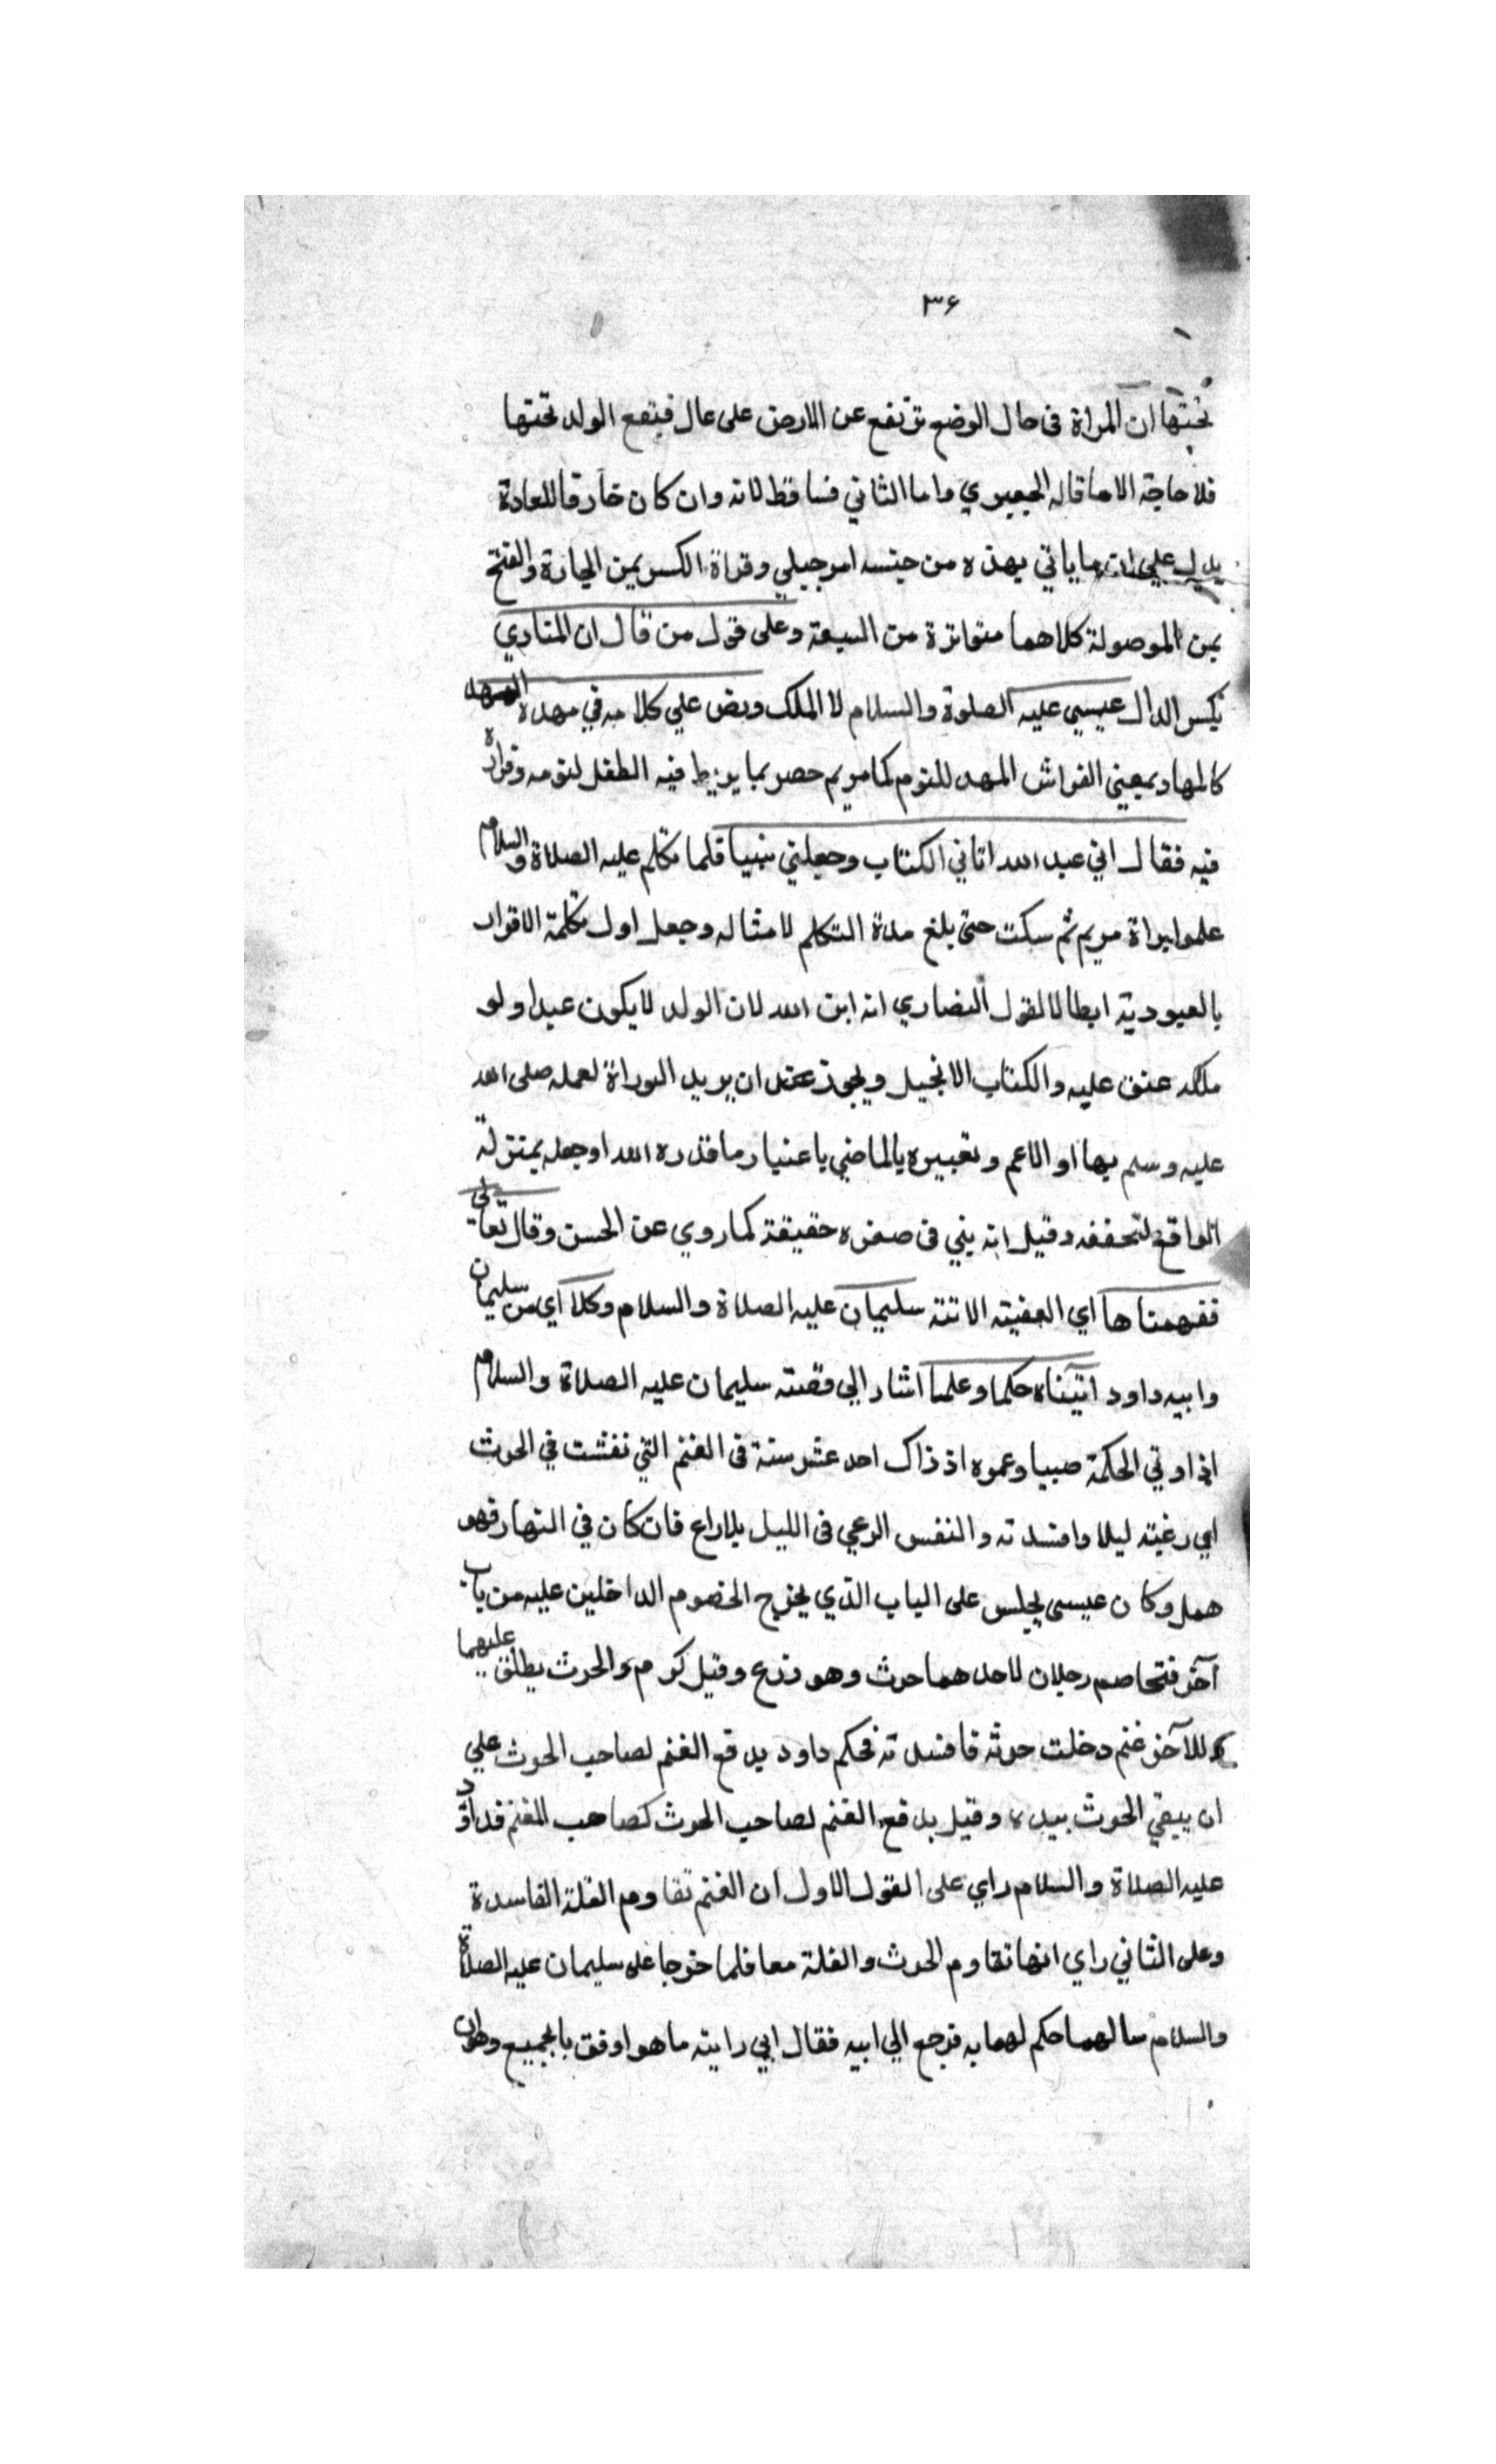 ٣٤
تحتها ان المراة فى حال الوضع ترتفع عن الارض على عال فيقع الولد تحتها
فلا حاجة الا ما قاله الجعبري واما الثاني فساقط لانه وان كان خارقا للعادة
يدل علي ان ما ياتي بهذه من جنسه امر جبلي وقراة الكسر بمن الجارة والفتح
بمن الموصولة كلاهما متواترة من السبعة وعلى قول من قال ان المنادي
بكسر الدال عيسي عليه الصلوة والسلام لا الملك ونص علي كلامه في مهده المهد
كالمهاد بمعني الفراش المهد للنوم كما مريم حصر بما يربط فيه الطفل لنومه وقراة
فيه فقال اني عبد الله اتاني الكتاب وجعلني نبيا فلما تكلم عليه الصلاة والسلام
علموا براة مريم ثم سكت حتى بلغ مدة التكلم لامثاله وجعل اول تكلمة الاقرار
بالعبودية ابطالا لقول النصاري انه ابن الله لان الولد لا يكون عبدا ولو
ملكه عتق عليه والكتاب الانجيل ويجوز عقل ان يريد التوراة لعمله صلى الله
عليه وسلم بها او الاعم وتعبيره بالماضي باعتبار ما قدره الله او جعله بمنزلة
الواقع لتحققه وقيل انه نبي فى صغره حقيقة كما روي عن الحسن وقال تعالي
ففهمناها اي القضية الاتية سليمان عليه الصلاة والسلام وكلا اي من سليمان
وابيه داود اتيناه حكما وعلما اشار الي قصته سليمان عليه الصلاة والسلام
اذ اوتي الحكمة صبيا وعمره اذ ذاك احد عشر سنة فى الغنم التي نفشت في الحرث
اي رعيته ليلا وافسدته والنفس الرعي فى الليل بلا راع فان كان في النهار فهو
همل وكان عيسى يجلس على الباب الذي يخرج الخصوم الداخلين عليه من باب
آخر فتخاصم رجلان لاحدهما حرث وهو زرع وقيل كرم والحرث يطلق عليهما
وللآخر غنم دخلت حرثه فافسدته فحكم داود بدفع الغنم لصاحب الحرث علي
ان يبقي الحرث بيده وقيل بدفع الغنم لصاحب الحرث كصاحب الغنم فداود
عليه الصلاة والسلام راي على القول الاول ان الغنم تقاوم الغلة الفاسدة
وعلى الثاني راي انها تقاوم الحرث والغلة معا فلما خرجا على سليمان عليه الصلاة
والسلام سالهما حكم لهما به فرجع الي ابيه فقال ابي رايته ما هو اوفق بالجميع وهو ان